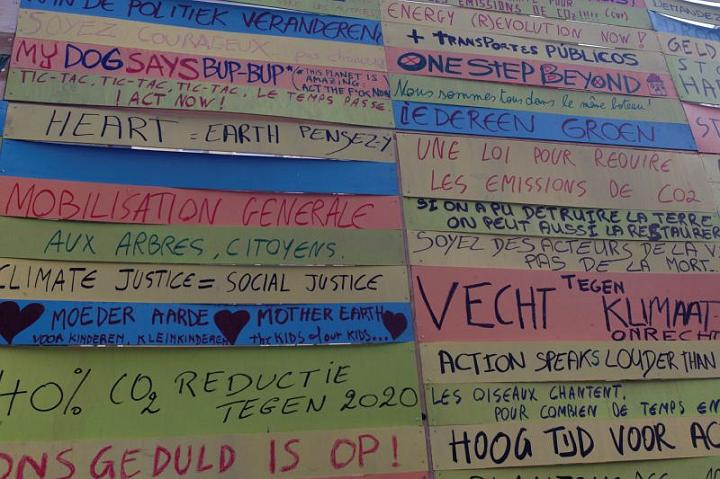 DE POLITIEK VERANDEREN
SOYEZ COURAGEUX
MY DOG SAYS BUP-BUP*
*(THIS PLANET IS
AMAZING.
TIC-TAC, TIC-TAC, TIC-TAC, LE TEMPS PASSE
! ACT NOW!
HEART = EARTH PENSEZ-Y
MOBILISATION GENERALE
AUX ARBRES, CITOYENS.
CLIMATE JUSTICE = SOCIAL JUSTICE
MOEDER AARDE MOTHER EARTH
VOOR KINDEREN, KLEINKINDEREN the KIDS of our KIDS...
40% CO2 REDUCTIE
TEGEN 2020
ONS GEDULD IS OP!
ENERGY (R)EVOLUTION NOW!
+ TRANSPORTES PÚBLICOS
ONE STEP BEYOND
Nous sommes tous dans le même bateau!
IEDEREEN GROEN
UNE LOI POUR REDUIRE
LES EMISSIONS DE CO2
SI ON A PU DETRUIRE LA TERRE
ON PEUT AUSSI LA RESTAURER
SOYEZ DES ACTEURS DE LA
PAS DE LA MORT.
VECHT TEGEN
KLIMAAT-
ONRECHT
ACTION SPEAKS LOUDER THAN
LES OISEAUX CHANTENT.
POUR COMBIEN DE TEMPS EN
HOOG TIJD VOOR AC